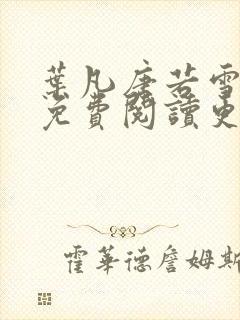 葉凡唐若雪
免費閱讀史
霍華德詹姆斯